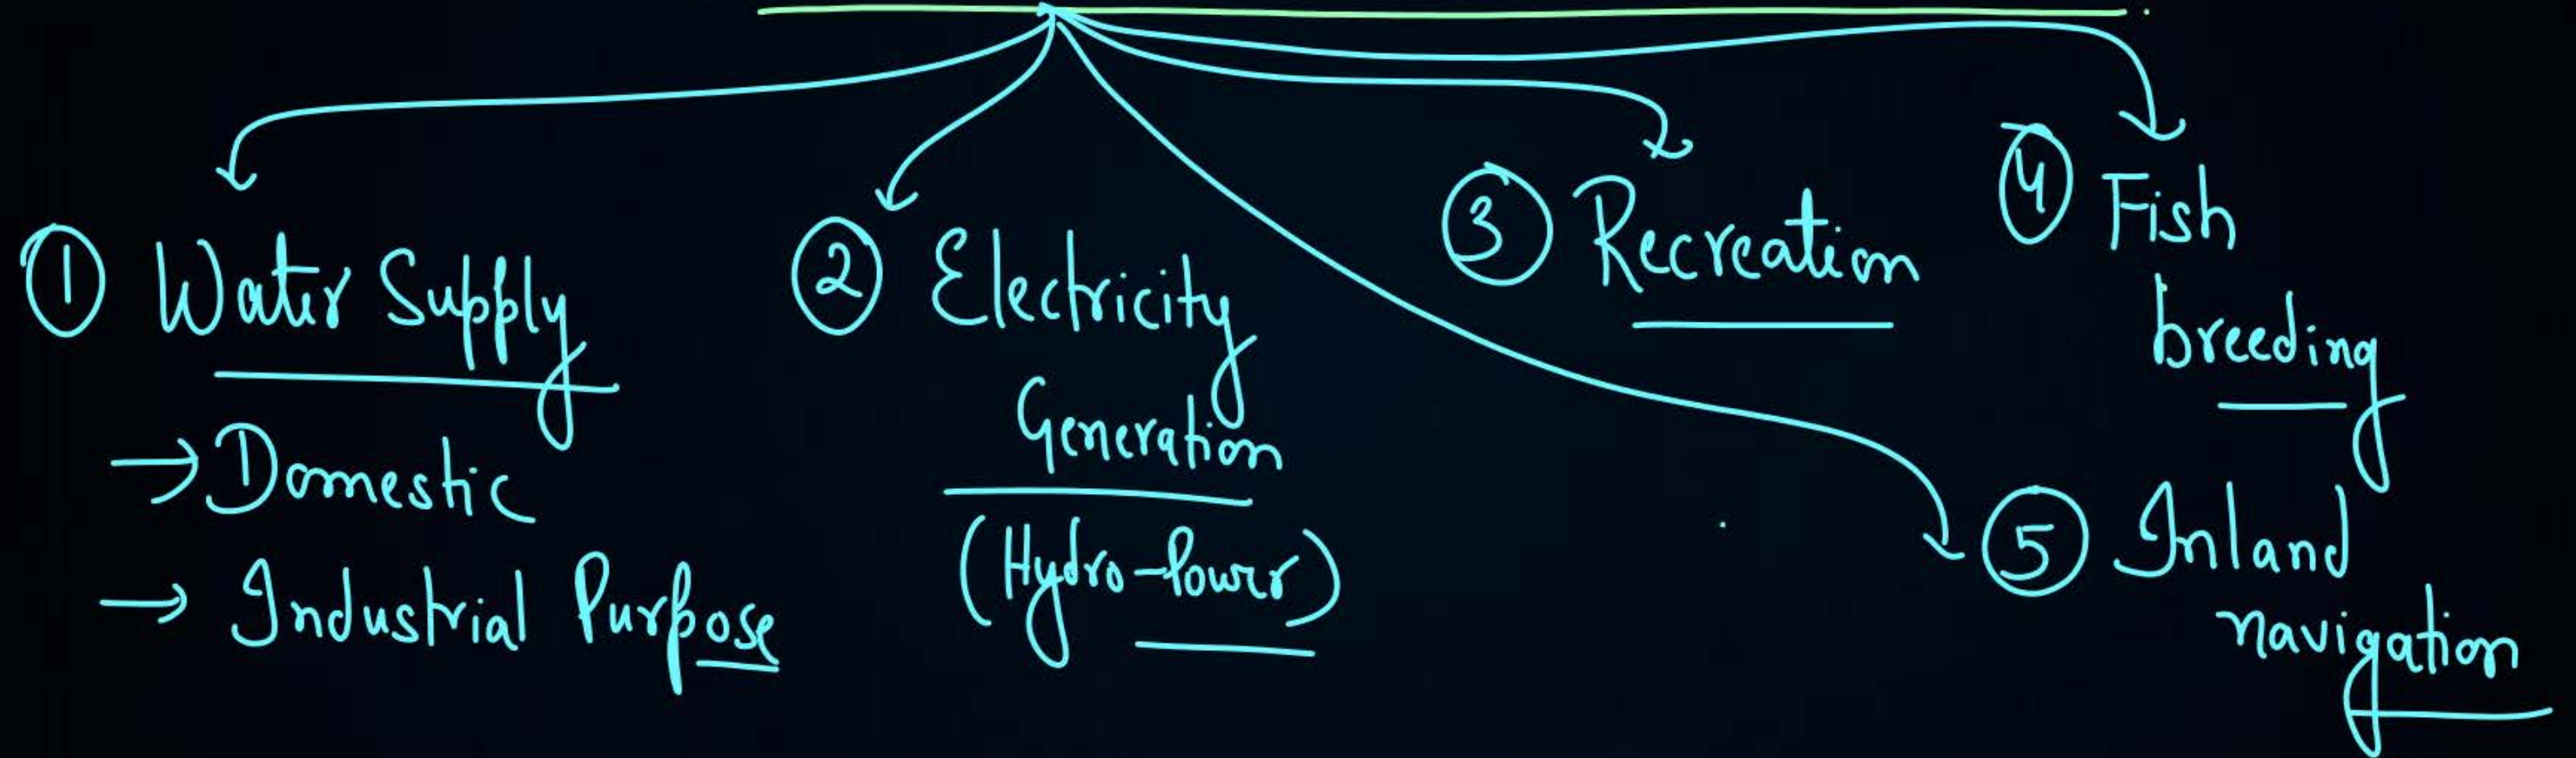 ① Water Supply
→ Domestic
→ Industrial Purpose
② Electricity
Generation
(Hydro-Power)
③ Recreation
④ Fish
breeding
⑤ Inland
navigation